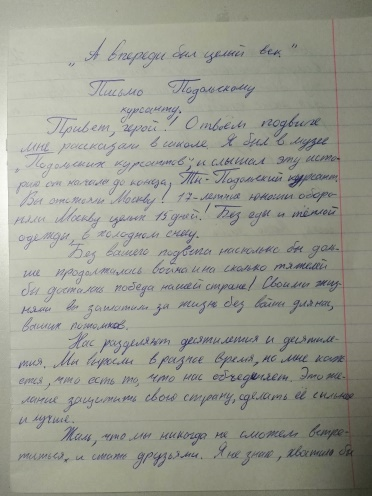 "А впереди был целый век"
Письмо Подольскому
курсанту.
Привет, герой! О твоём подвиге
мне рассказали в школе. Я был в музее
"Подольских курсантов", и слышал эту исто-
рию от начала до конца. Ты - Подольский курсант.
Вы отстояли Москву! 17-летние юноши оборо-
няли Москву целых 15 дней! Без еды и тёплой
одежды, в холодном снегу.
Без вашего подвига насколько бы доль-
ше продолжалась война и на сколько тяжелей
бы досталась победа нашей стране! Своими жиз-
нями вы заплатили за жизнь без войны для нас,
ваших потомков.
Нас разделяют десятилетия и десятиле-
тия. Мы выросли в разное время, но мне каж-
ется, что есть то, что нас объединяет. Это же-
лание защитить свою страну, сделать её сильнее
и лучше.
Жаль, что мы никогда не сможем встре-
титься и стать друзьями. Я не знаю, хватило бы